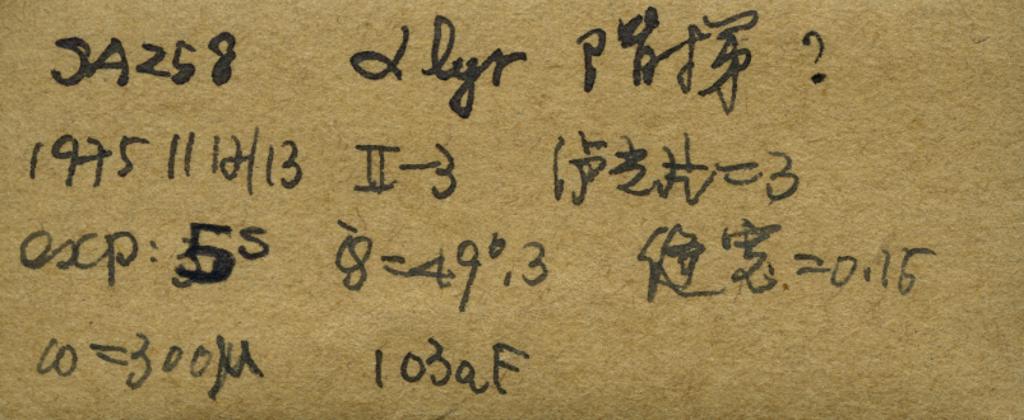 SA258 α lyr 阶梯?
1975 11 12/13 II-3 滤光片=3
exp: 5s =49°.3 缝宽=0.15
ω=300μ 103aF